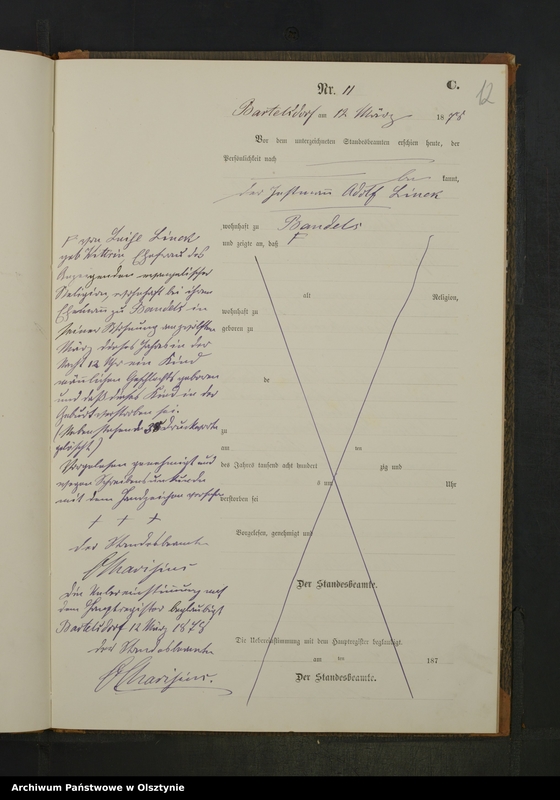 Nr. 11
C.
12
Bartelsdorf am 12 März 1878
Vor dem unterzeichneten Standesbeamten erschien heute, der
Persönlichkeit nach
be kannt,
der Instmann Adolf Linck
wohnhaft zu Bandels
und zeigte an, daß F
F von Linck
geb Ehefrau des
Anzeigenden evangelischer
Religion, wohnhaft bei ihrem
Ehemann zu Bandels in
seiner Wohnung am
März dieses Jahres in der
Nacht 12 Uhr ein Kind
männlichen Geschlechts geboren
und daß dieses Kind in der
Geburt verstorben sei.
(Nebenstehende Druckworte
gelöscht.)
Vorgelesen genehmigt und
wegen Schreibensunkunde
mit dem Handzeichen versehen
+ + +
Der Standesbeamte
Die Uebereinstimmung mit
dem Hauptregister beglaubigt
Bartelsdorf 12 März 1878
Der Standesbeamte
alt Religion,
wohnhaft zu
geboren zu
de
zu
am ten
des Jahres tausend acht hundert zig und
s um Uhr
verstorben sei
Vorgelesen, genehmigt und
Der Standesbeamte.
Die Uebereinstimmung mit dem Hauptregister beglaubigt.
am ten 187
Der Standesbeamte.
Archiwum Państwowe w Olsztynie